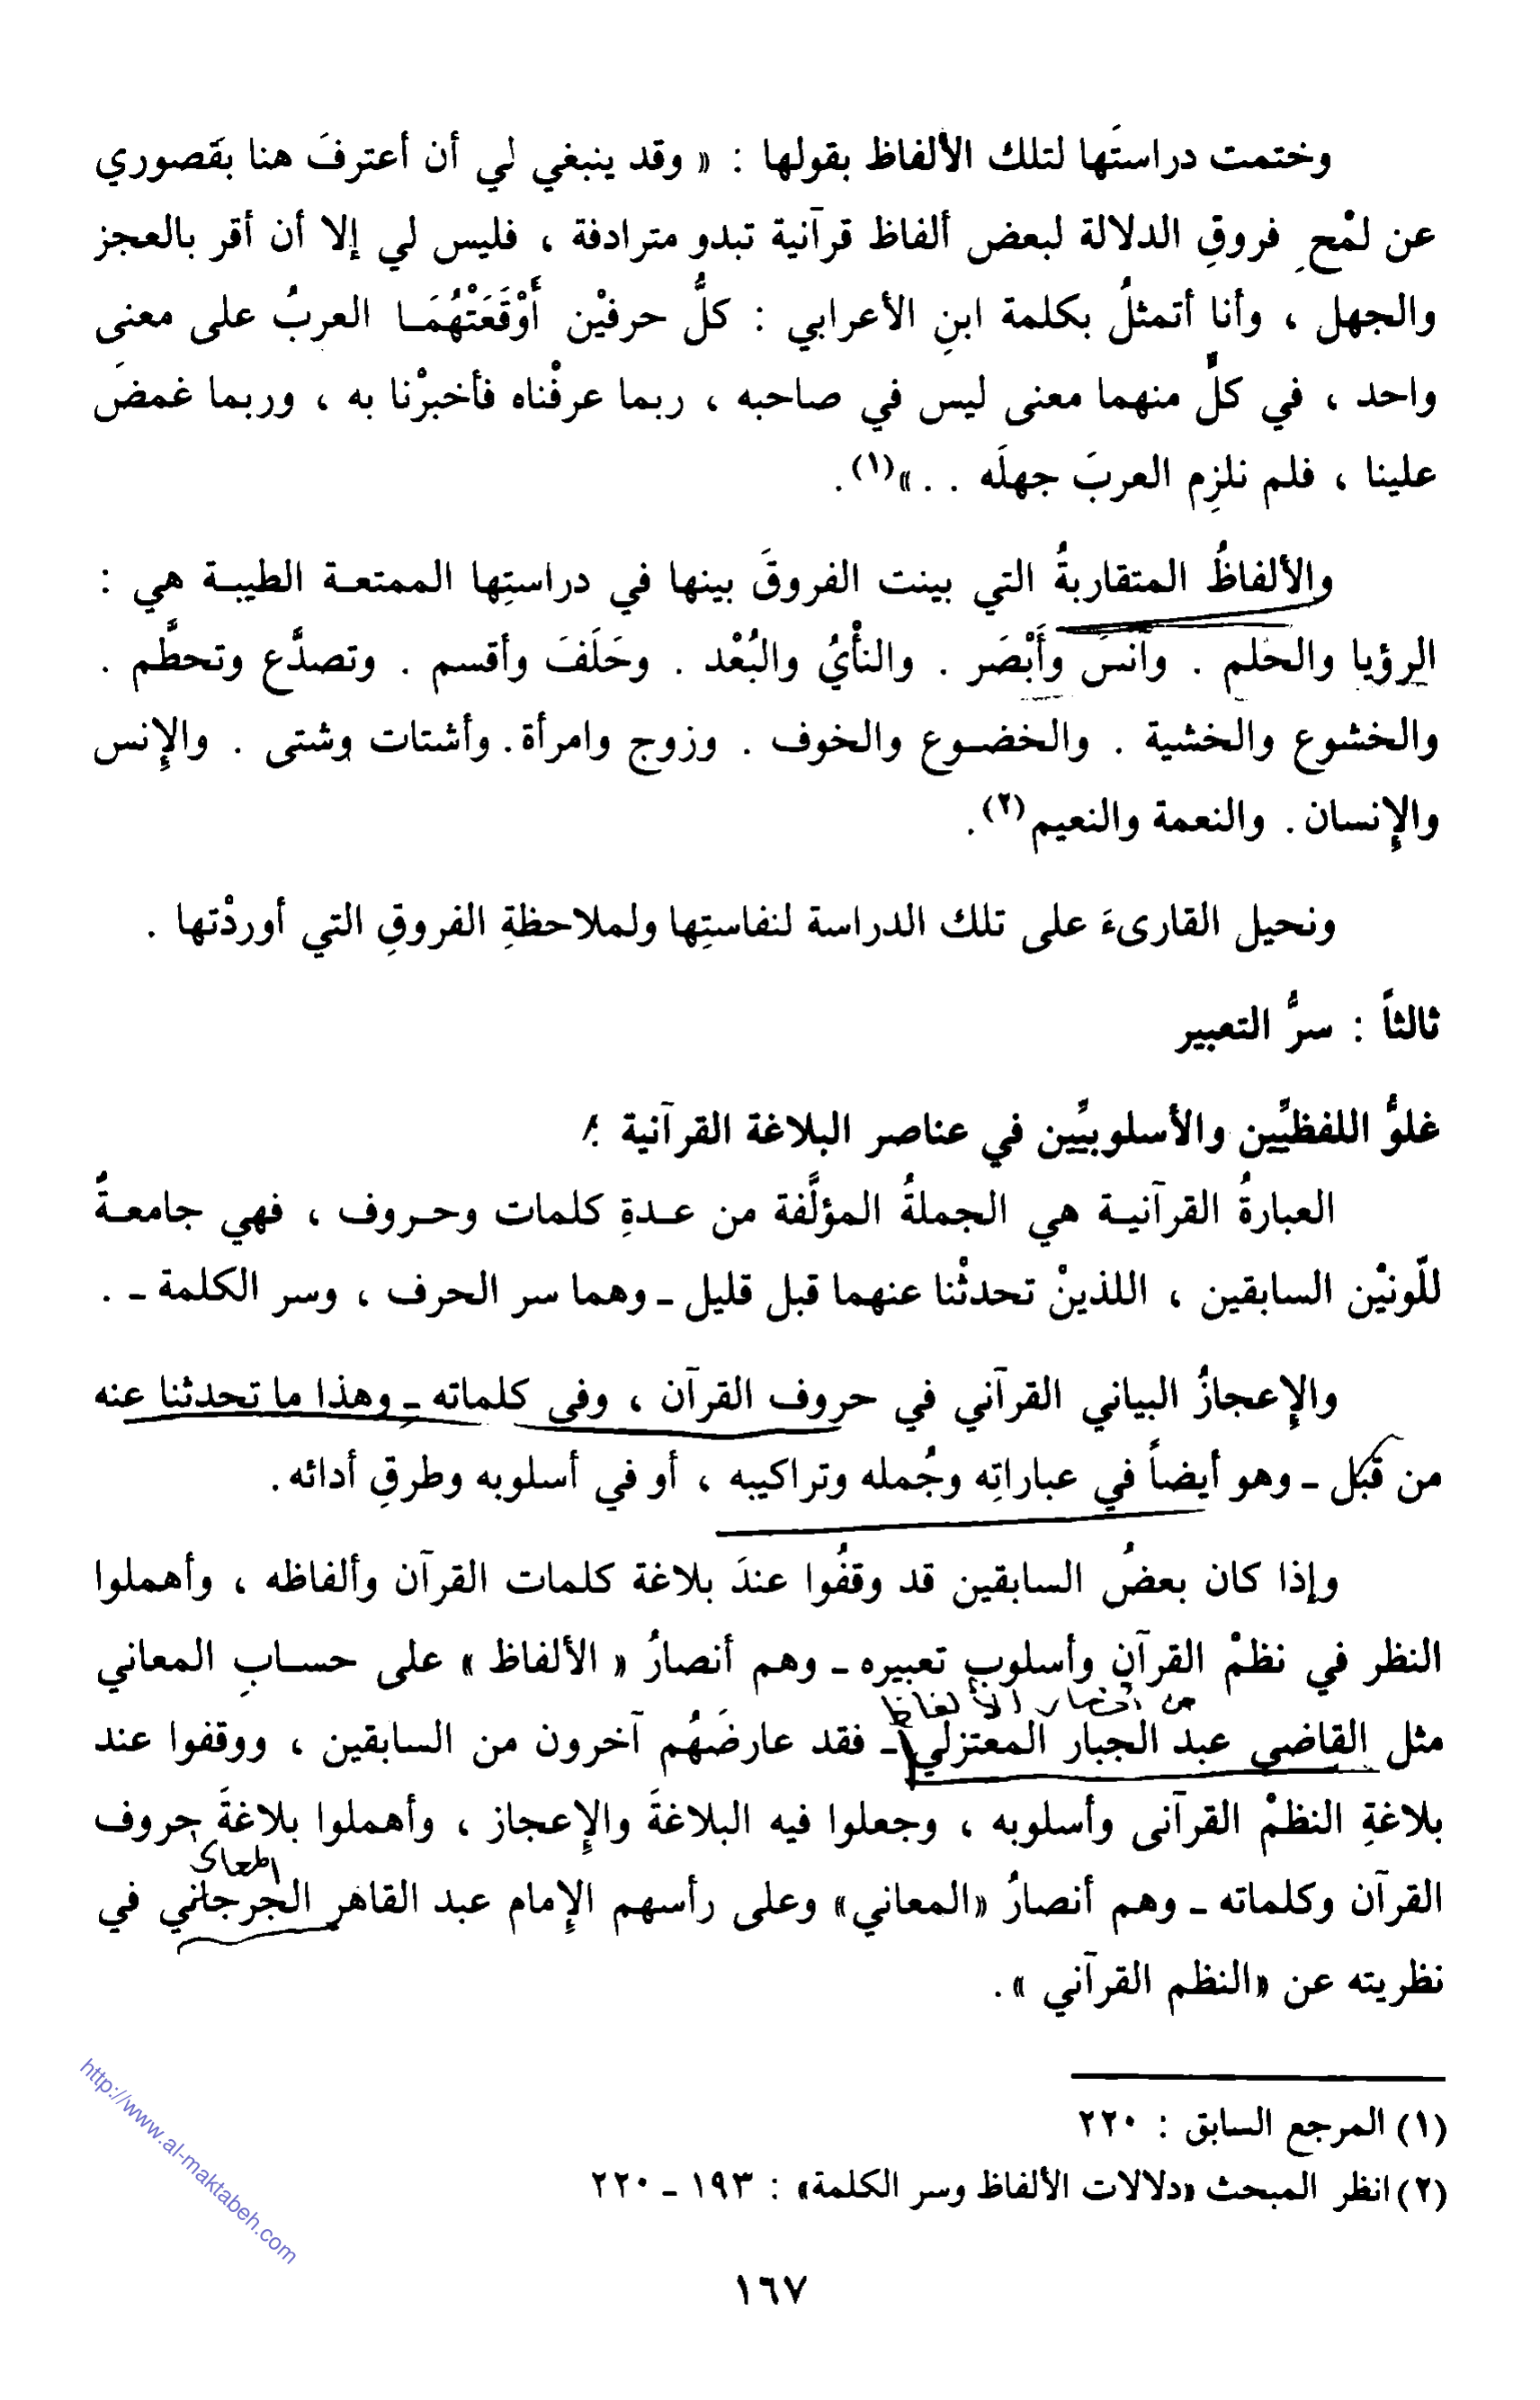 وختمت دراستَها لتلك الألفاظ بقولها : « وقد ينبغي لي أن أعترفَ هنا بقصوري
عن لمْحِ فروقِ الدلالة لبعض ألفاظ قرآنية تبدو مترادفة ، فليس لي إلا أن أقر بالعجز
والجهل ، وأنا أتمثلُ بكلمة ابنِ الأعرابي : كلُّ حرفيْن أَوْقَعَتْهُمَا العربُ على معنى
واحد ، في كلٍّ منهما معنى ليس في صاحبه ، ربما عرفْناه فأخبرْنا به ، وربما غمضَ
علينا ، فلم نلزِم العربَ جهلَه . . »(١).
والألفاظُ المتقاربةُ التي بينت الفروقَ بينها في دراستِها الممتعة الطيبة هي :
الرؤيا والحلم . وآنسَ وأَبْصَر . والنأْيُ والبُعْد . وحَلَفَ وأقسم . وتصدَّع وتحطَّم .
والخشوع والخشية . والخضوع والخوف . وزوج وامرأة. وأشتات وشتى . والإنس
والإنسان . والنعمة والنعيم(٢).
ونحيل القارىءَ على تلك الدراسة لنفاستِها ولملاحظةِ الفروقِ التي أوردْتها .
ثالثاً : سرُّ التعبير
غلوُّ اللفظيِّين والأسلوبيِّين في عناصر البلاغة القرآنية :
العبارةُ القرآنية هي الجملةُ المؤلَّفة من عدةِ كلمات وحروف ، فهي جامعةٌ
للّونيْن السابقين ، اللذينْ تحدثْنا عنهما قبل قليل ـ وهما سر الحرف ، وسر الكلمة ـ .
والإعجازُ البياني القرآني في حروف القرآن ، وفي كلماته ـ وهذا ما تحدثنا عنه
من قبل ـ وهو أيضاً في عباراتِه وجُمله وتراكيبه ، أو في أسلوبه وطرقِ أدائه .
وإذا كان بعضُ السابقين قد وقفُوا عندَ بلاغة كلمات القرآن وألفاظه ، وأهملوا
النظر في نظمْ القرآن وأسلوب تعبيره ـ وهم أنصارُ « الألفاظ » على حسابِ المعاني
من أنصار الألفاظ
مثل القاضي عبد الجبار المعتزلي ـ فقد عارضَهُم آخرون من السابقين ، ووقفوا عند
بلاغةِ النظمْ القرآنى وأسلوبه ، وجعلوا فيه البلاغةَ والإعجاز ، وأهملوا بلاغةَ حروف
المعاني
القرآن وكلماته ـ وهم أنصارُ «المعاني» وعلى رأسهم الإمام عبد القاهر الجرجاني في
نظريته عن «النظم القرآني ».
(١) المرجع السابق : ٢٢٠
(٢) انظر المبحث «دلالات الألفاظ وسر الكلمة» : ١٩٣ ـ ٢٢٠
١٦٧
http://www.al-maktabeh.com